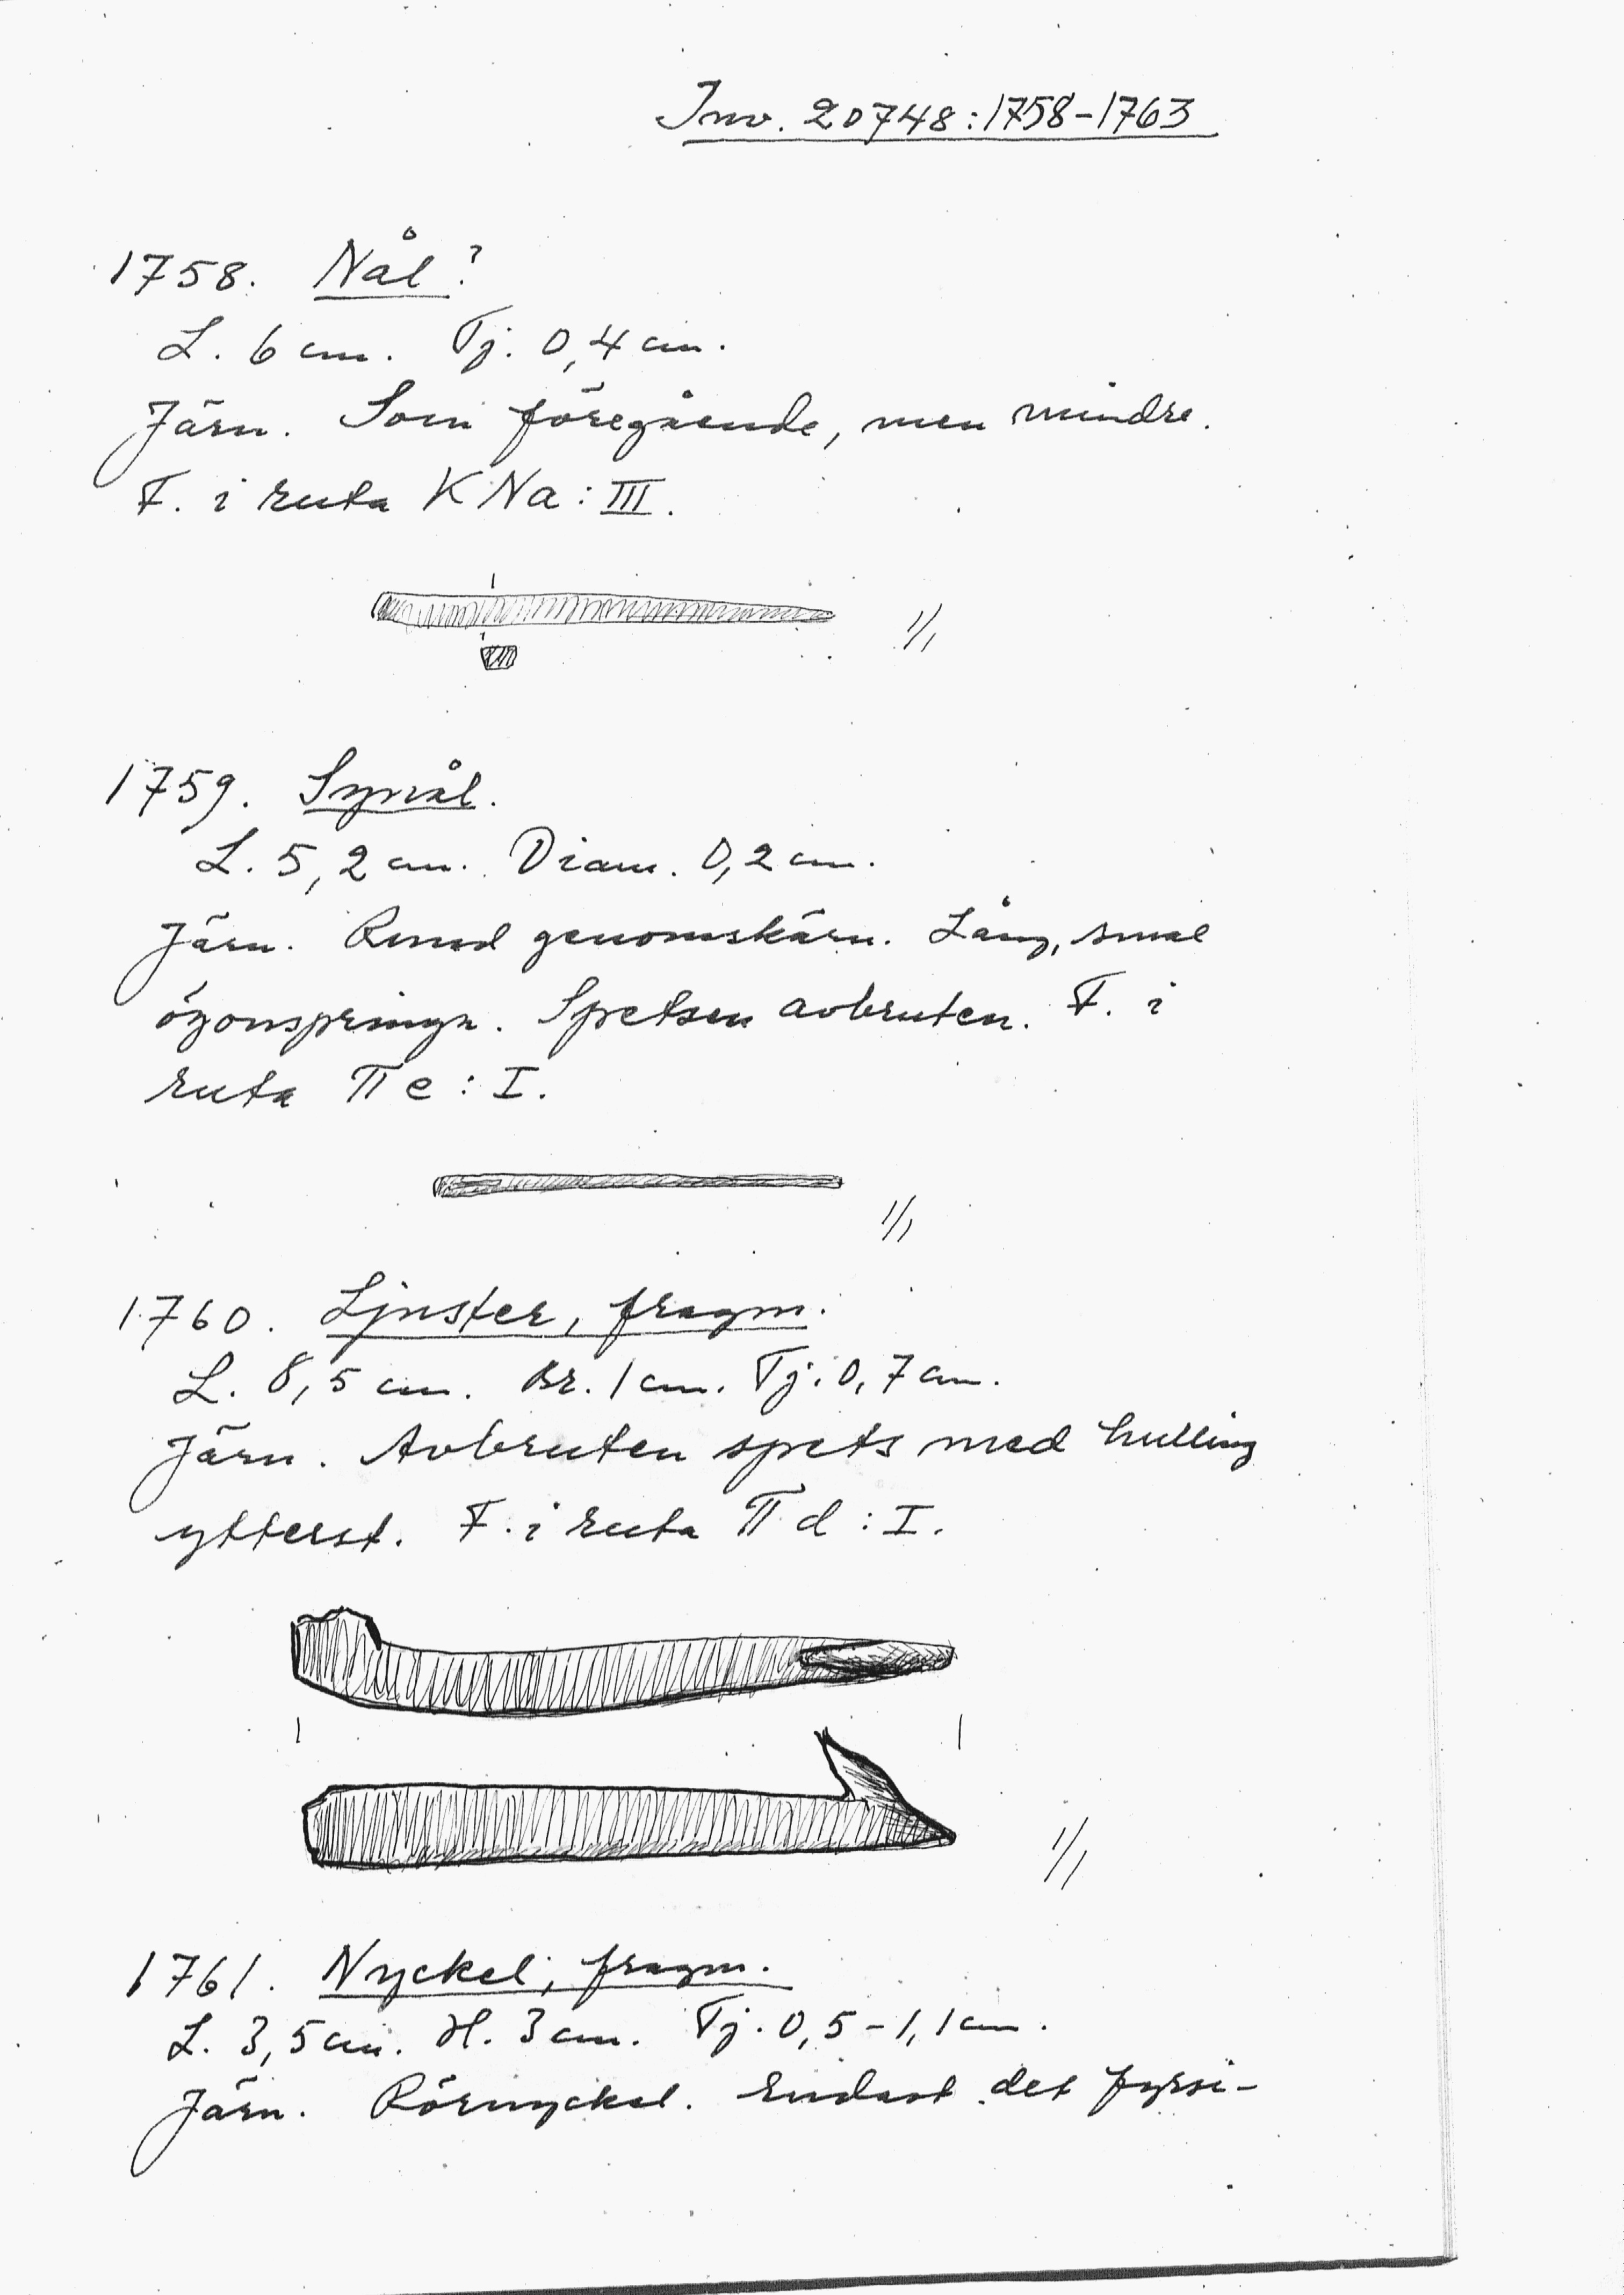 Inv. 20748:1758-1763
1758. Nål?
L. 6 cm. Tj. 0,4 cm.
Järn. Som föregående, men mindre.
F. i ruta KNa:III.
1/1
1759. Synål.
L. 5,2 cm. Diam. 0,2 cm.
Järn. Rund genomskärn. Lång, smal
ögonspringa. Spetsen avbruten. F. i
ruta TTe:I.
1/1
1760. Ljuster, fragm.
L. 8,5 cm. Br. 1 cm. Tj. 0,7 cm.
Järn. Avbruten spets med hulling
ytterst. F. i ruta TTd:I.
1/1
1761. Nyckel, fragm.
L. 3,5 cm. H. 3 cm. Tj. 0,5-1,1 cm.
Järn. Rörnyckel. Endast det fyrsi-